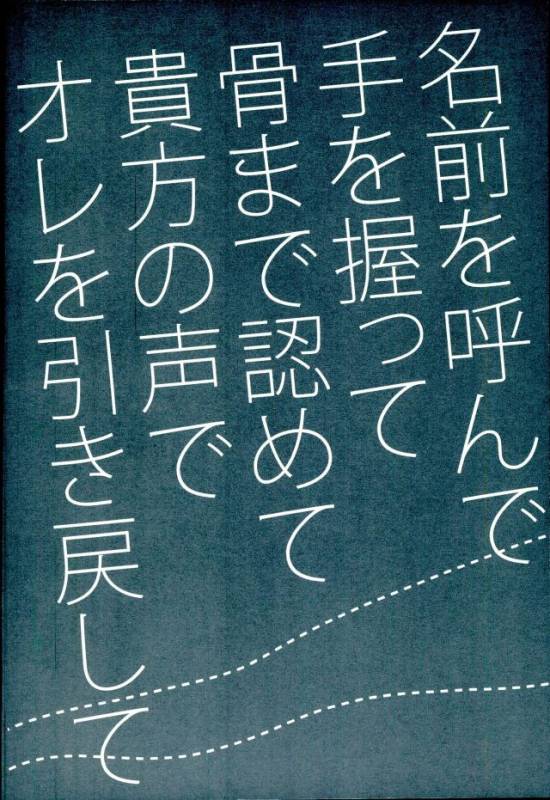 名前を呼んで
手を握って
骨まで認めて
貴方の声で
オレを引き戻して